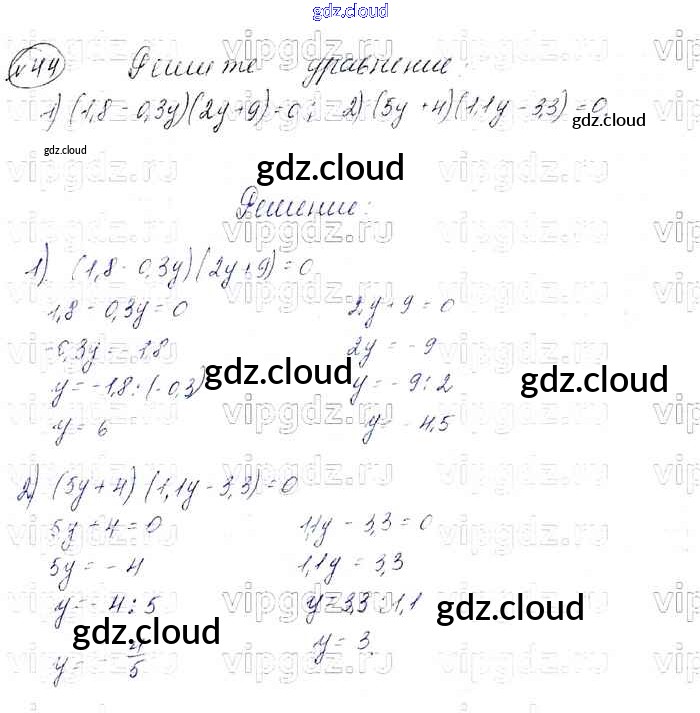 gdz.cloud
№44 Решите уравнение:
1) (1,8 - 0,3y)(2y+9)=0; 2) (5y+4)(1,1y-3,3)=0
gdz.cloud
gdz.cloud
gdz.cloud
Решение:
1) (1,8-0,3y)(2y+9)=0
1,8-0,3y=0 2y+9=0
-0,3y=-1,8 2y=-9
y=-1,8:(-0,3) y=-9:2
gdz.cloud
gdz.cloud
y=6 y=-4,5
2) (5y+4)(1,1y-3,3)=0
5y+4=0 1,1y-3,3=0
5y=-4 1,1y=3,3
y=-4:5 y=3,3:1,1
gdz.cloud
gdz.cloud
y=-4/5 y=3.
vipgdz.ru